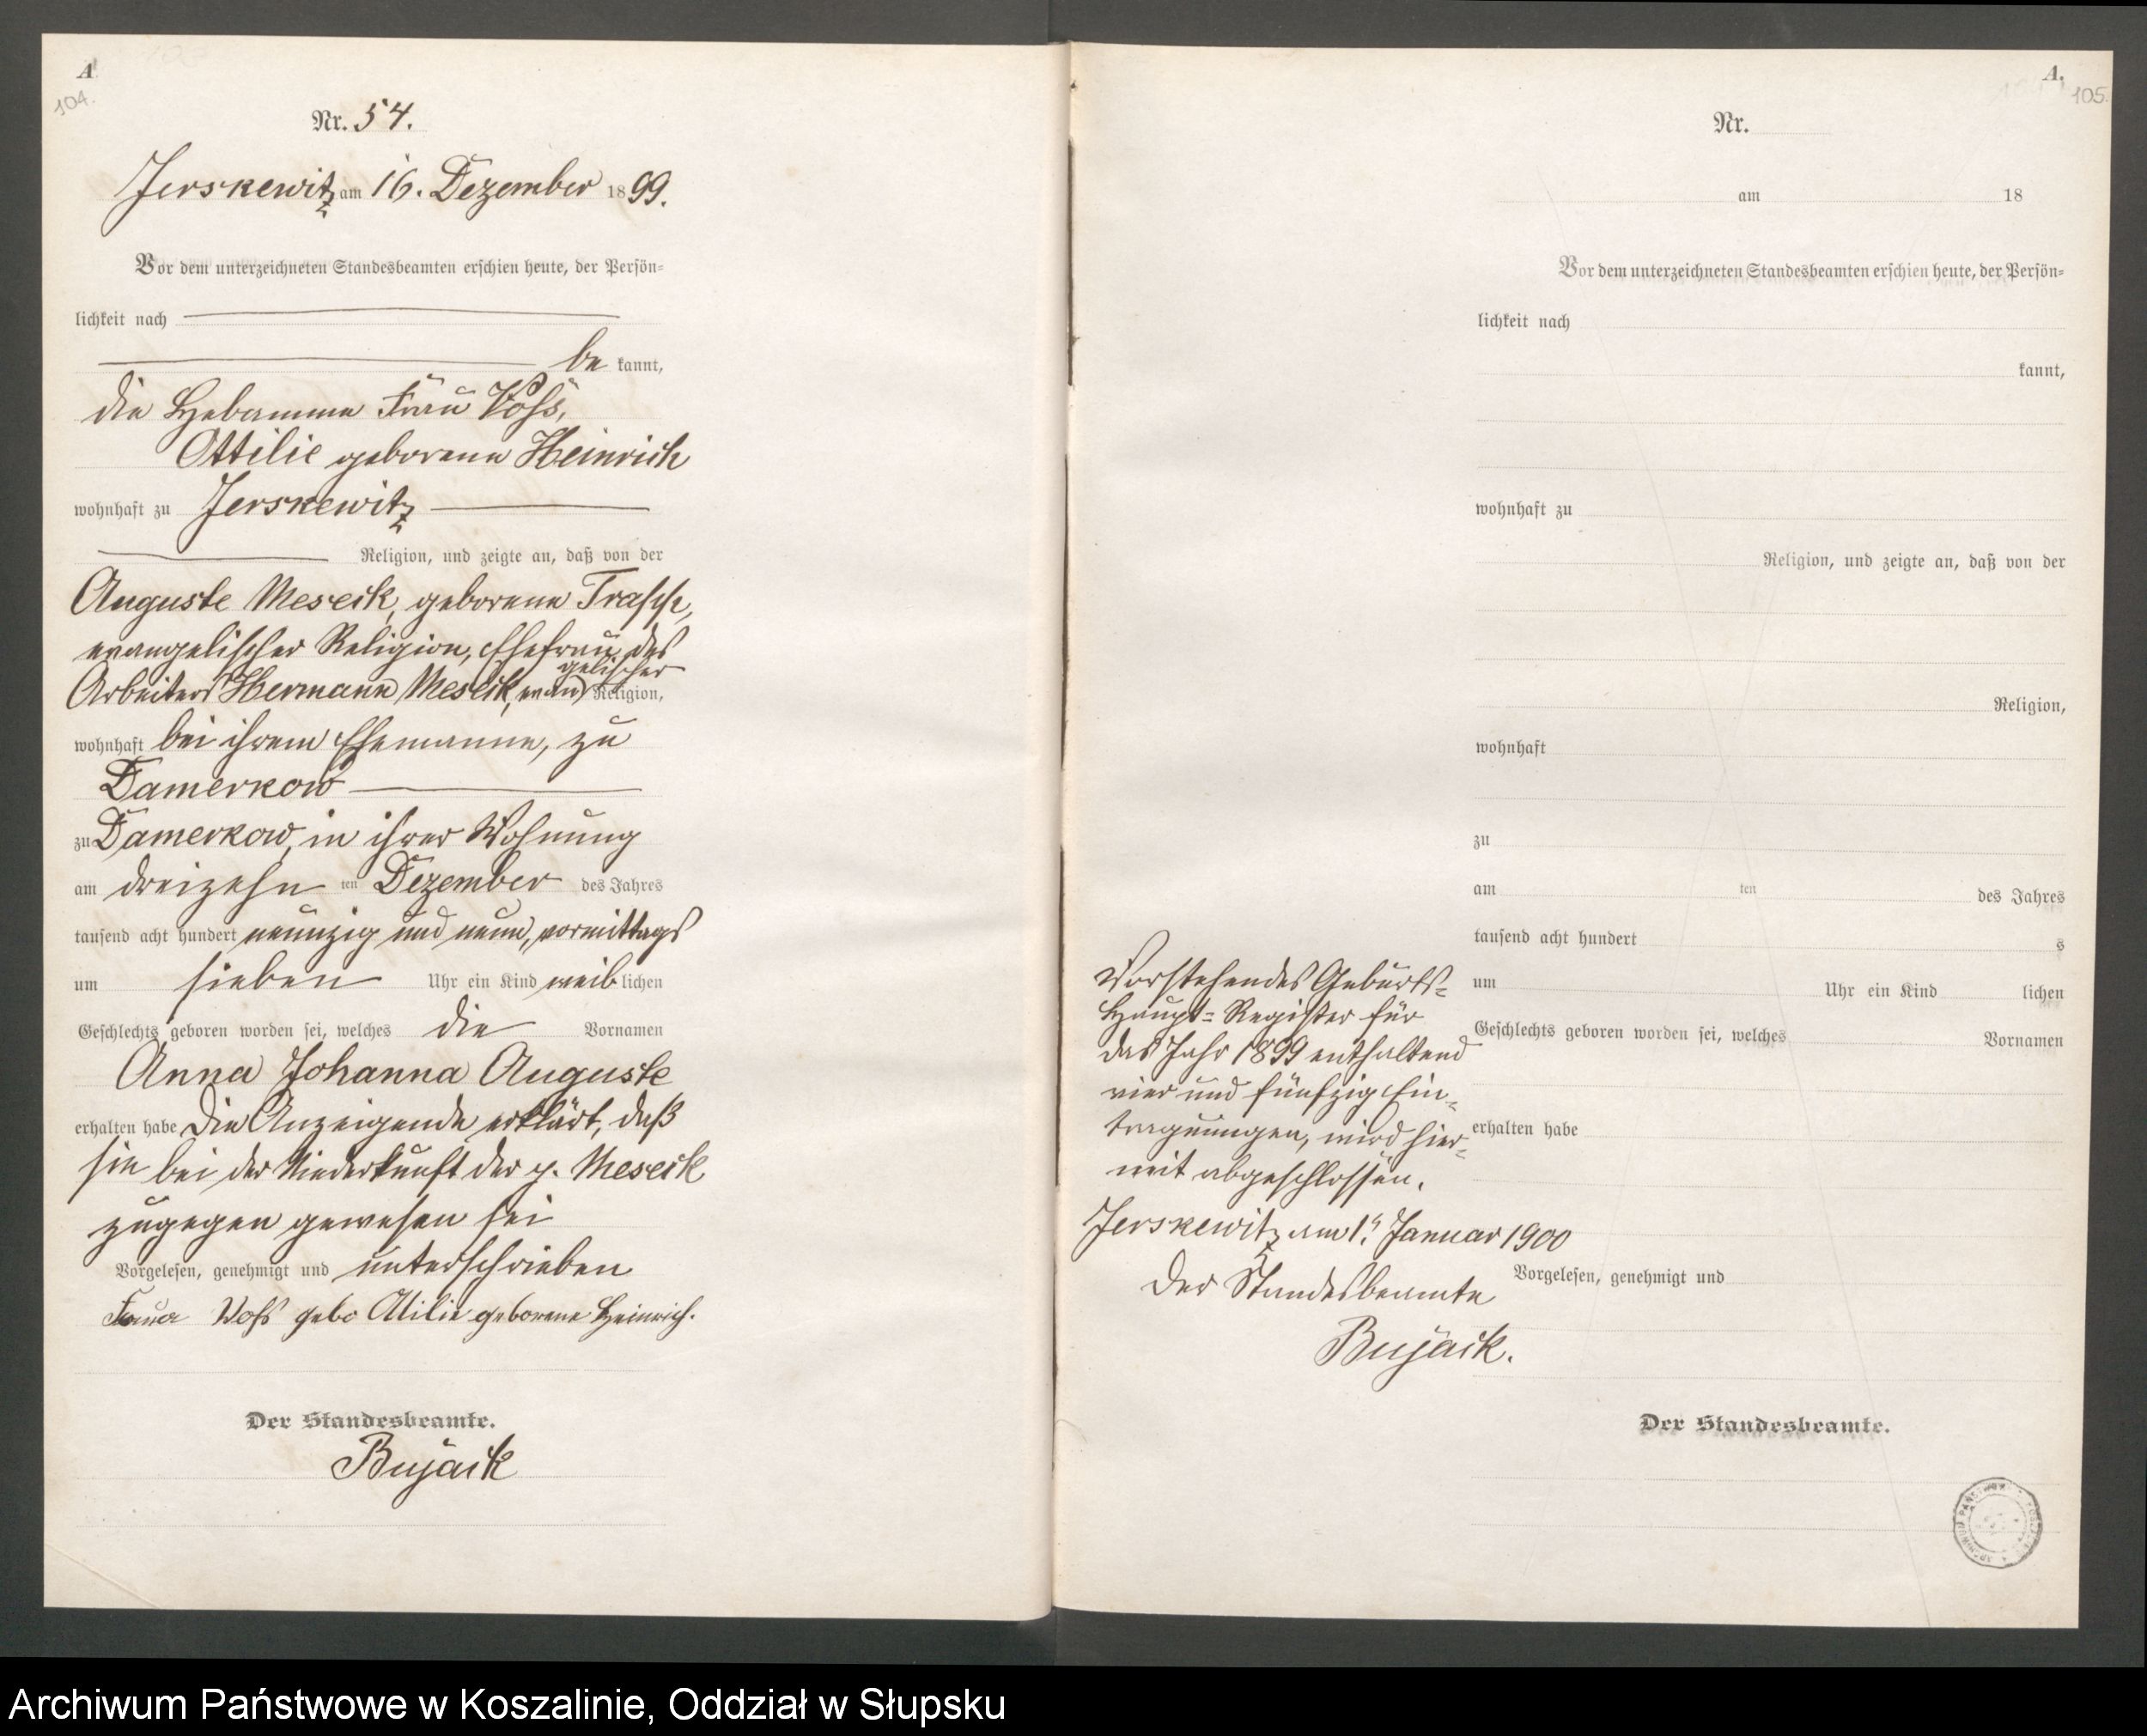 A
104.
Nr. 54.
Jerskewitz am 16. Dezember 1899.
Vor dem unterzeichneten Standesbeamten erschien heute, der Persön-
lichkeit nach
be kannt,
die Hebamme Frau Voß,
Ottilie geborene Heinrich
wohnhaft zu Jerskewitz
Religion, und zeigte an, daß von der
Auguste Meseck, geborene
evangelischer Religion, Ehefrau des
Arbeiters Hermann Meseck, evangelischer Religion,
wohnhaft bei ihrem Ehemanne, zu
Damerkow
zu Damerkow, in ihrer Wohnung
am dreizehn ten Dezember des Jahres
tausend acht hundert neunzig und neun, vormittags
um sieben Uhr ein Kind weiblichen
Geschlechts geboren worden sei, welches die Vornamen
Anna Johanna Auguste
erhalten habe Die Anzeigende erklärt, daß
sie bei der Niederkunft der p. Meseck
zugegen gewesen sei
Vorgelesen, genehmigt und unterschrieben
Voß gebo Otilie geborene Heinrich.
Der Standesbeamte.
Bujack
A.
105.
Nr.
am 18
Vor dem unterzeichneten Standesbeamten erschien heute, der Persön-
lichkeit nach
kannt,
wohnhaft zu
Religion, und zeigte an, daß von der
Religion,
wohnhaft
zu
am ten des Jahres
tausend acht hundert s
um Uhr ein Kind lichen
Geschlechts geboren worden sei, welches Vornamen
erhalten habe
Vorgelesen, genehmigt und
Der Standesbeamte.
Vorstehendes Geburts-
Haupt-Register für
das Jahr 1899 enthaltend
vier und fünfzig Ein-
tragungen, wird hier-
mit abgeschlossen.
Jerskewitz am 1t. Januar 1900
Der Standesbeamte
Bujack.
Archiwum Państwowe w Koszalinie, Oddział w Słupsku